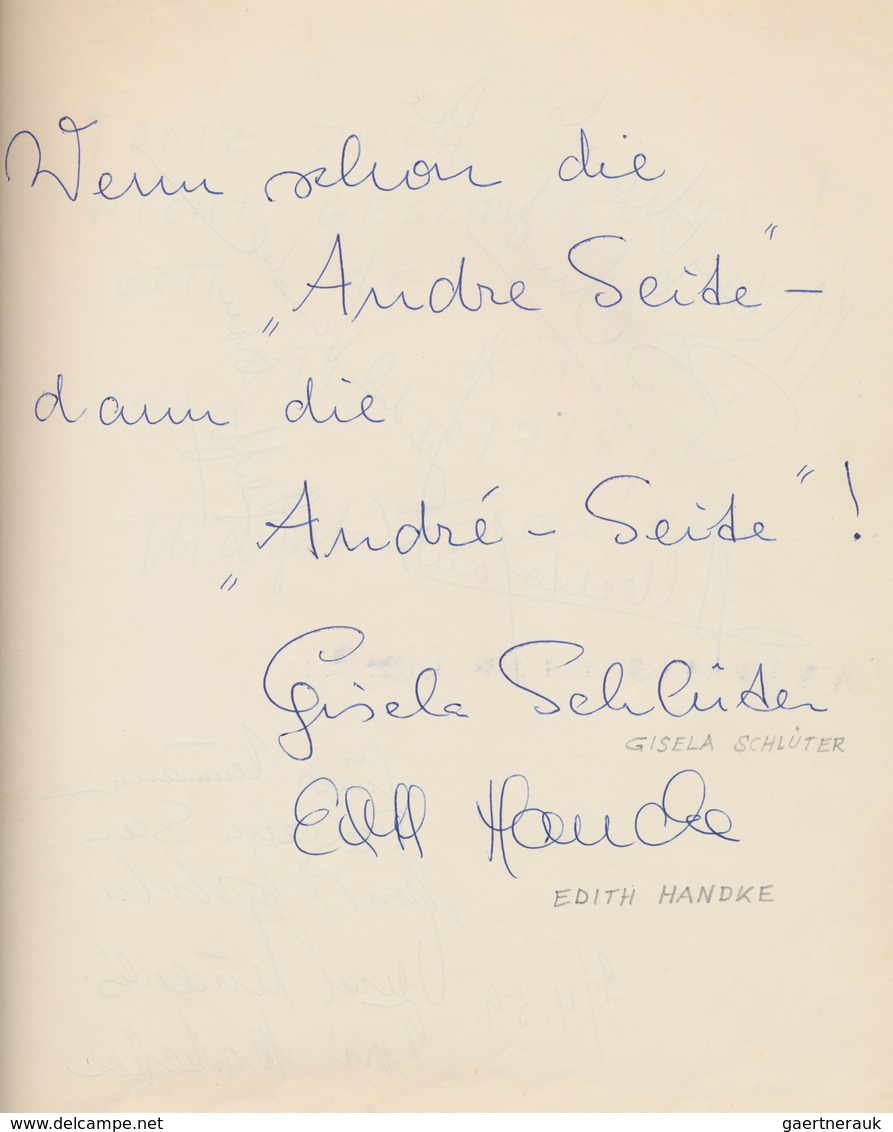 Wenn schon die
„Andre Seite" –
dann die
„André – Seite"!
Gisela Schlüter
GISELA SCHLÜTER
Edith Hancke
EDITH HANDKE
www.delcampe.net
gaertnerauk